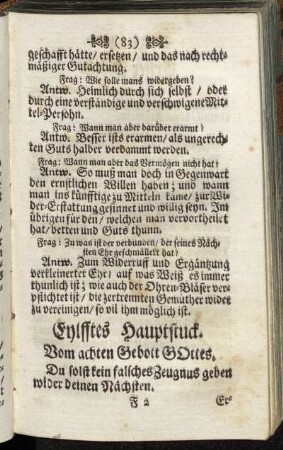 (83)
geschafft hätte/ ersetzen/ und das nach recht-
mäßiger Gutachtung.
Frag: Wie solle mans widergeben?
Antw. Heimlich durch sich selbst/ oder
durch eine verständige und verschwigene Mit-
tel-Persohn.
Frag: Wann man aber darüber erarmt?
Antw. Besser ists erarmen/ als ungerech-
ten Guts halber verdammt werden.
Frag: Wann man aber das Vermögen nicht hat?
Antw. So muß man doch in Gegenwart
den ernstlichen Willen haben; und wann
man ins künfftige zu Mitteln käme/ zur Wi-
der-Erstattung gesinnet und willig seyn. Im
übrigen für den/ welchen man vervortheilet
hat/ betten und Guts thunn.
Frag: Zu was ist der verbunden/ der seines Näch-
sten Ehr geschmälert hat?
Antw. Zum Widerruff und Ergäntzung
verkleinerter Ehr/ auf was Weiß es immer
thunlich ist; wie auch der Ohren-Bläser ver-
pflichtet ist/ die zertrennten Gemüther wider
zu vereinigen/ so vil ihm möglich ist.
Eylfftes Hauptstuck.
Vom achten Gebott GOttes.
Du solst kein falsches Zeugnus geben
wider deinen Nächsten.
F 2 Er-